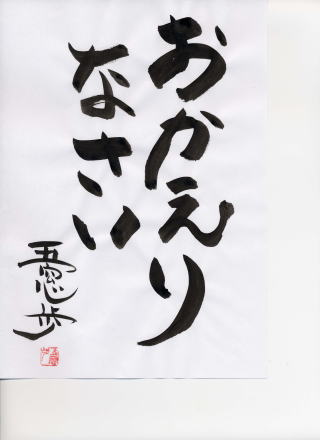 おかえり
なさい